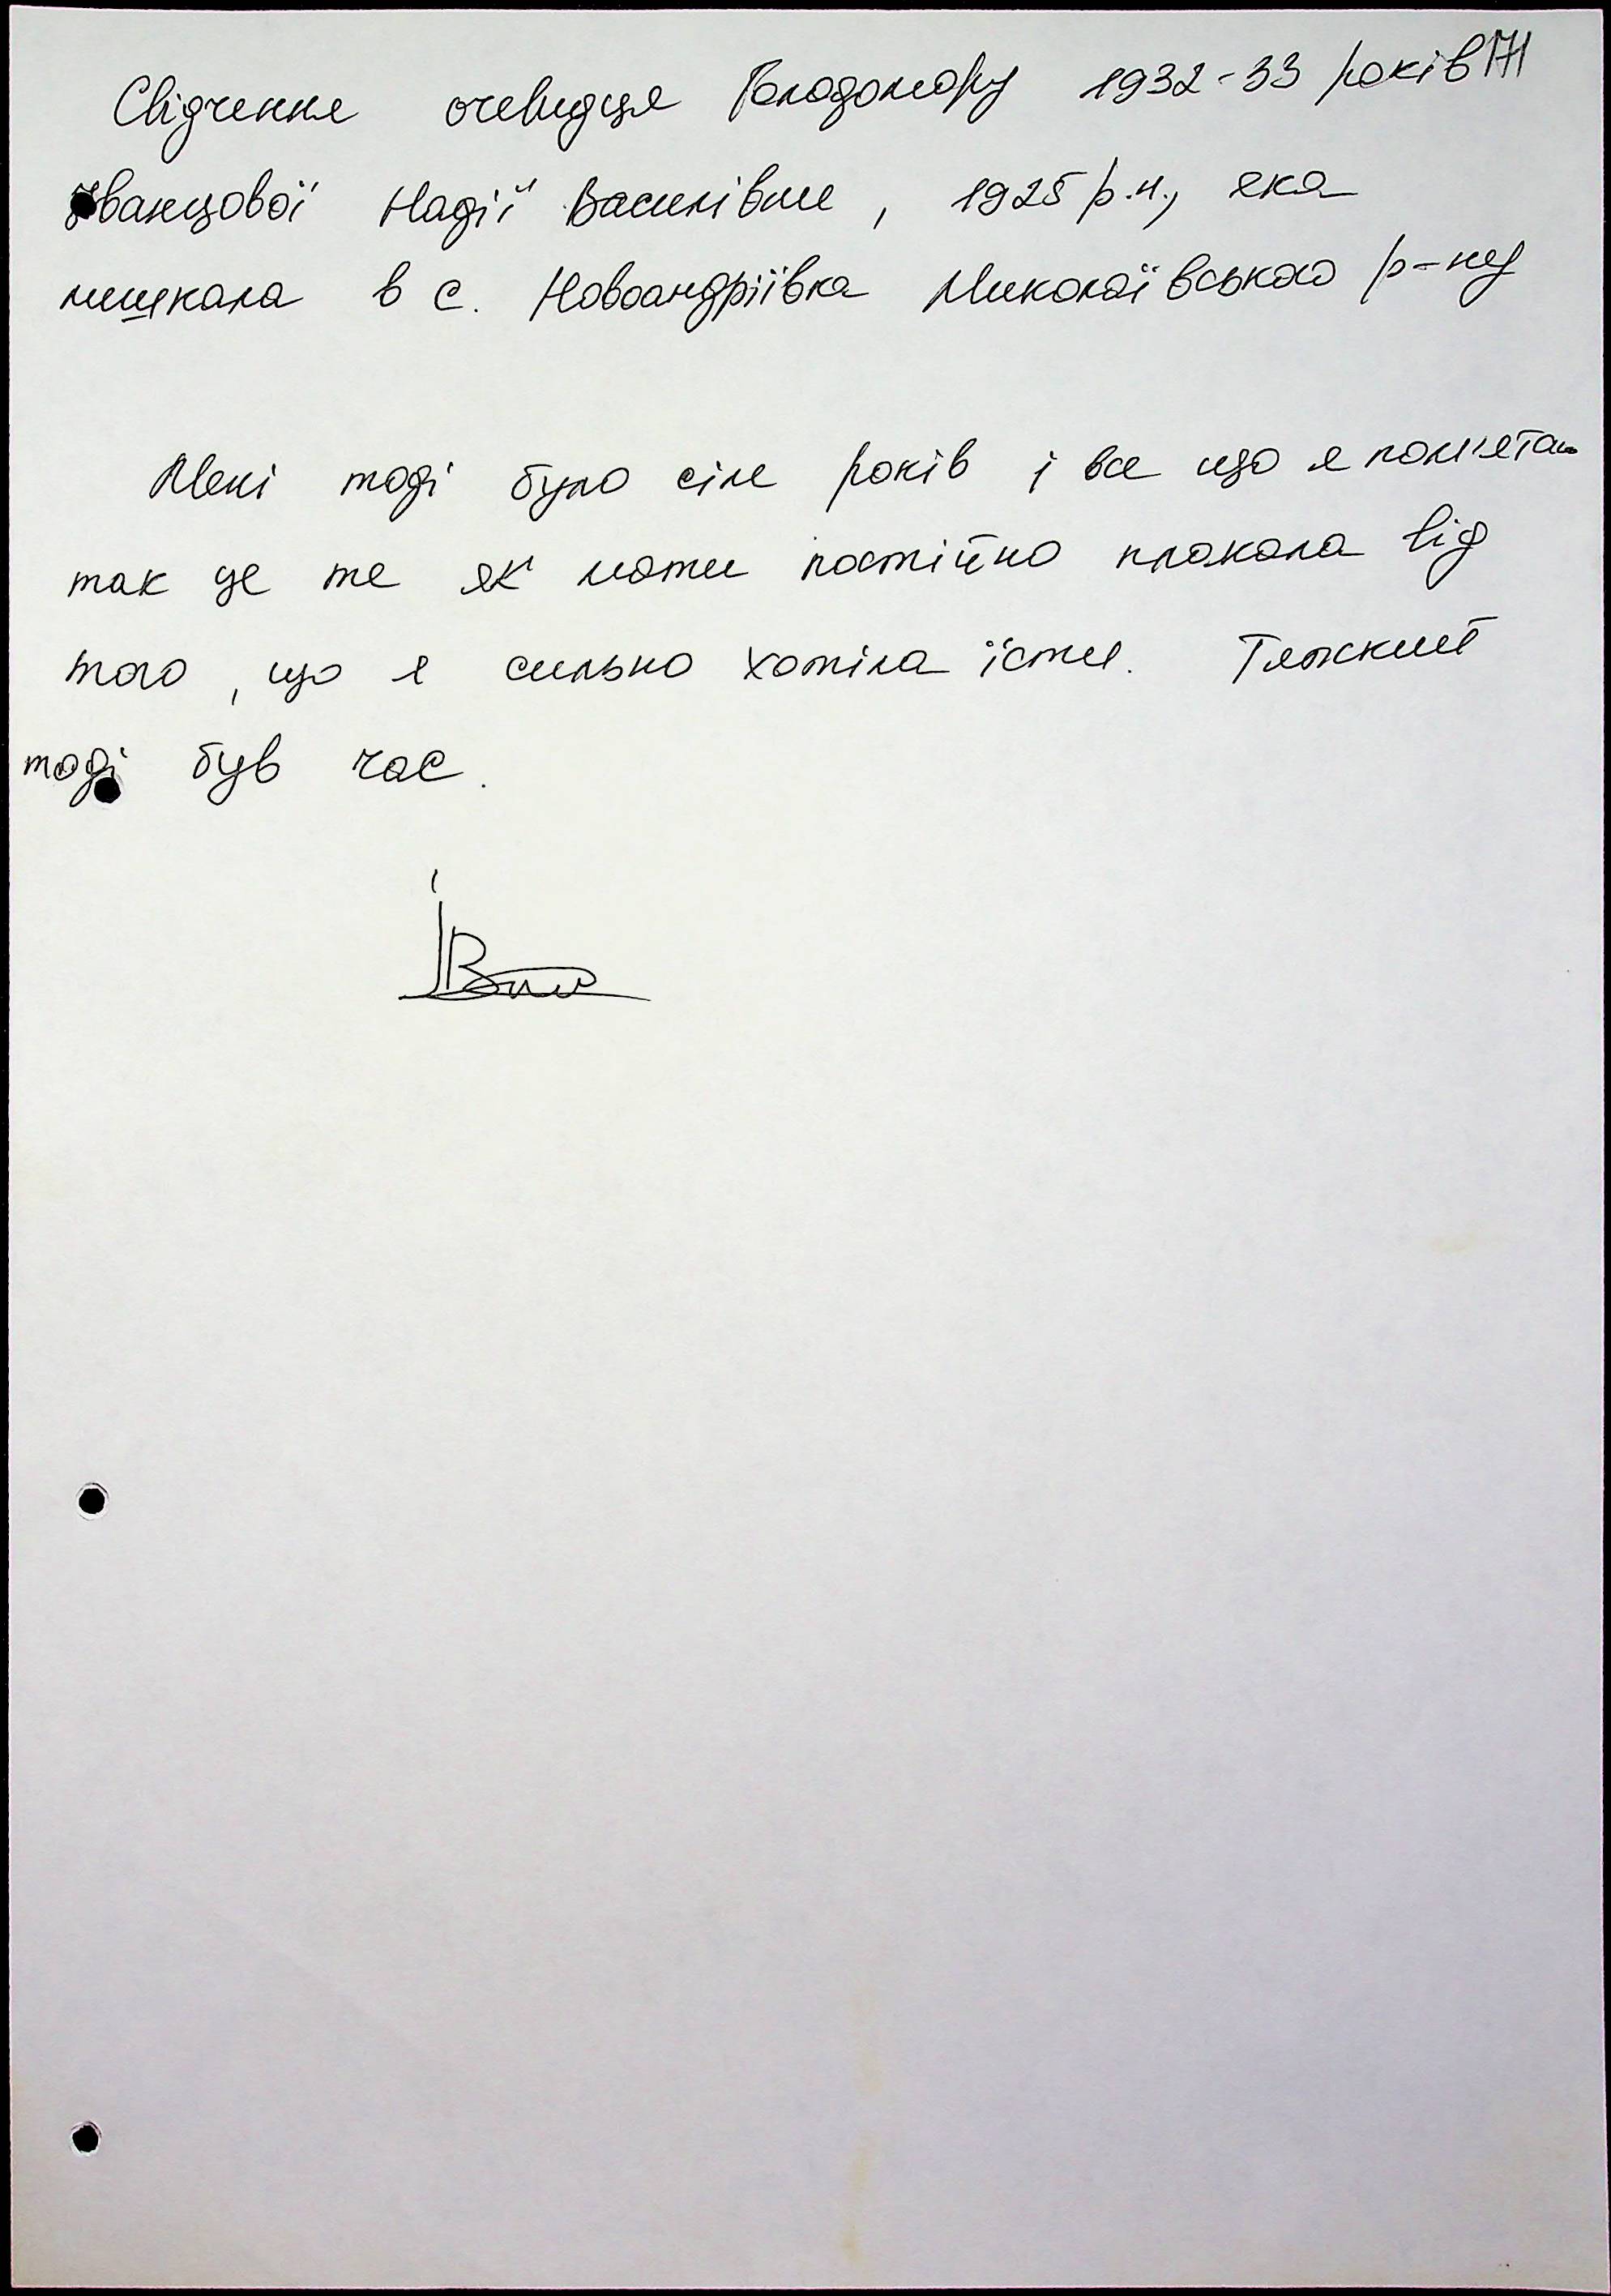 Свідчення очевидця Голодомору 1932-33 років 171
Іванцової Надії Василівни, 1925 р.н., яка
мешкала в с. Новоандріївка Миколаївського р-ну
Мені тоді було сім років і все що я пам'ятаю
так це те як мати постійно плакала від
того, що я сильно хотіла їсти. Тяжкий
тоді був час.